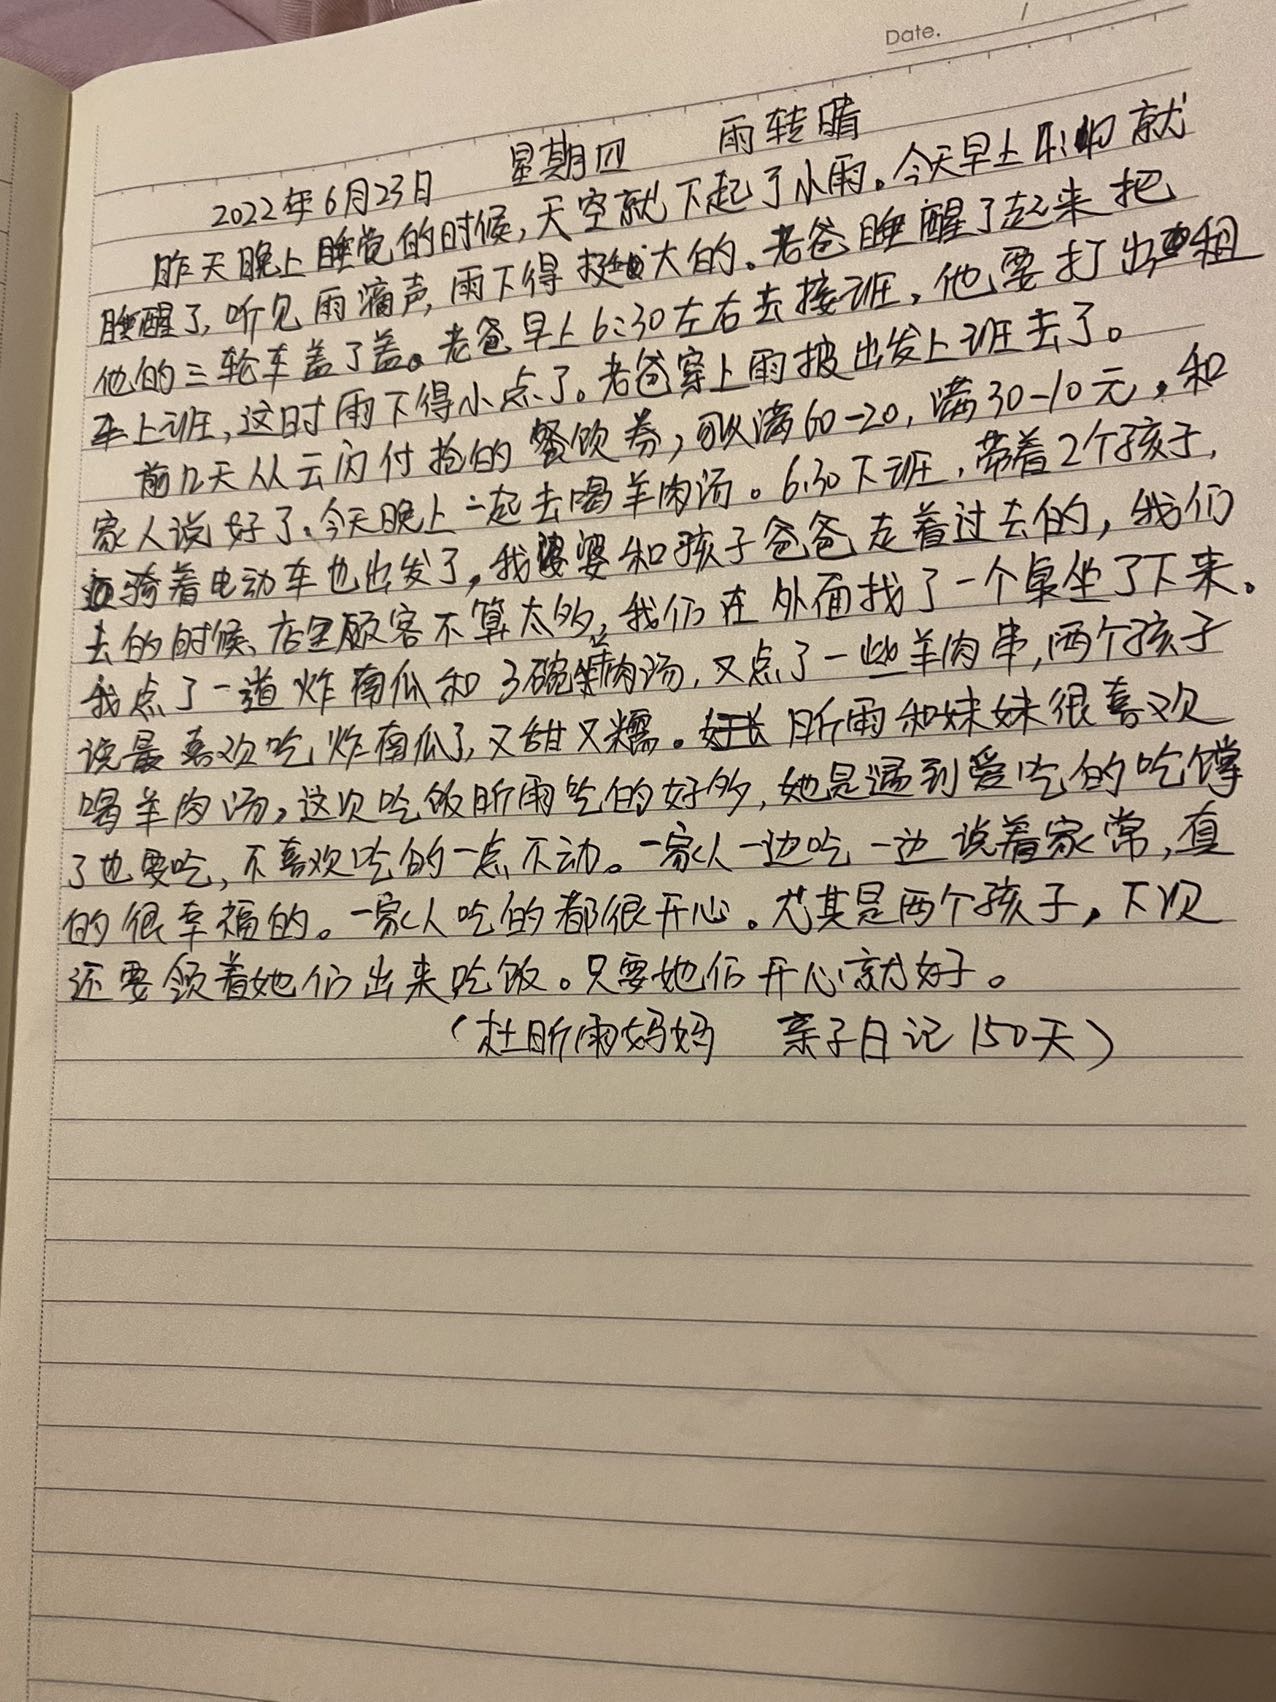 Date. /
2022年6月23日 星期四 雨转晴
昨天晚上睡觉的时候,天空就下起了小雨。今天早上4:40就
睡醒了,听见雨滴声,雨下得挺大的。老爸睡醒了起来把
他的三轮车盖了盖。老爸早上6:30左右去接班,他要打出租
车上班,这时雨下得小点了。老爸穿上雨披出发上班去了。
前几天从云闪付抢的餐饮券,可以满60-20,满30-10元,和
家人说好了、今天晚上一起去喝羊肉汤。6:30下班,带着2个孩子,
骑着电动车也出发了,我婆婆和孩子爸爸走着过去的,我们
去的时候、店里顾客不算太多,我们在外面找了一个桌坐了下来。
我点了一道炸南瓜和3碗羊肉汤,又点了一些羊肉串,两个孩子
说最喜欢吃炸南瓜了,又甜又糯。昕雨和妹妹很喜欢
喝羊肉汤,这次吃饭昕雨吃的好多,她是遇到爱吃的吃撑
了也要吃,不喜欢吃的一点不动。一家人一边吃一边说着家常,真
的很幸福的。一家人吃的都很开心。尤其是两个孩子,下次
还要领着她们出来吃饭。只要她们开心就好。
(杜昕雨妈妈 亲子日记150天)